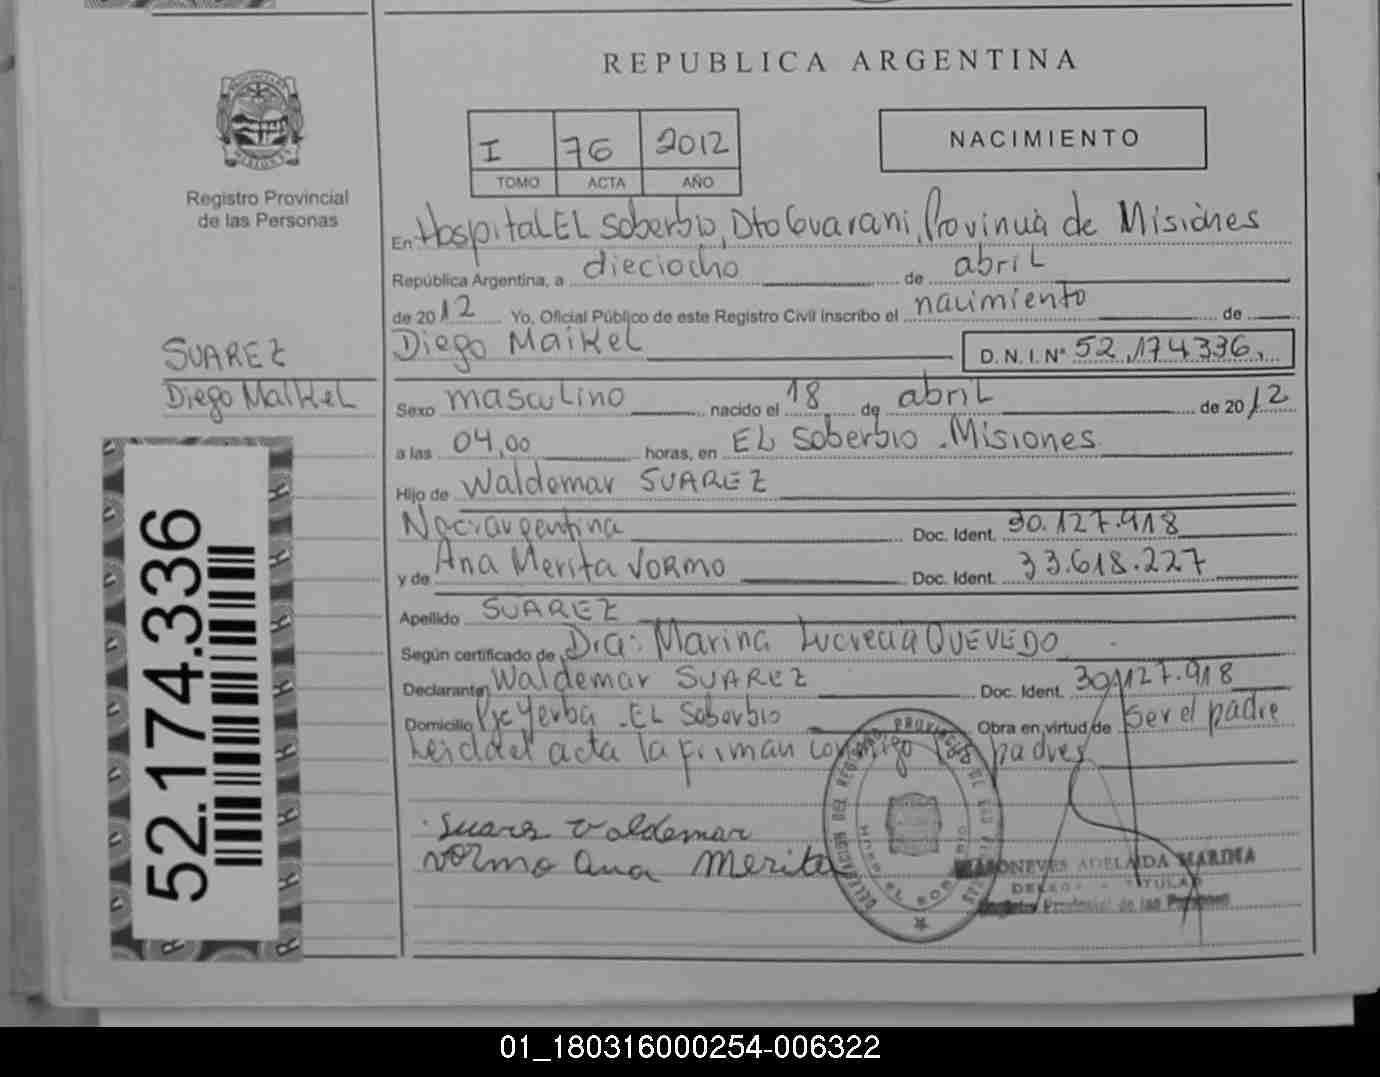 REPUBLICA ARGENTINA
I 76 2012
TOMO ACTA AÑO
NACIMIENTO
Registro Provincial
de las Personas
SUAREZ
Diego Maikel
52.174.336
En Hospital EL Soberbio, Dto Guarani, Provincia de Misiones
República Argentina, a dieciocho de abril
de 2012 Yo, Oficial Público de este Registro Civil inscribo el nacimiento de
Diego Maikel D.N.I.Nº 52.174.336
Sexo masculino nacido el 18 de abril de 2012
a las 04,00 horas, en EL Soberbio - Misiones
Hijo de Waldemar SUAREZ
Nac: argentina Doc. Ident. 30.127.918
y de Ana Merita VORMO Doc. Ident. 33.618.227
Apellido SUAREZ
Según certificado de Dra: Marina Lucrecia QUEVEDO
Declarante Waldemar SUAREZ Doc. Ident. 30.127.918
Domicilio Pje Yerba - EL Soberbio Obra en virtud de ser el padre
Leida el acta la firman conmigo los padres
Suarez Valdemar
Vormo Ana Merita
ADELAIDA MARINA
TITULAR
Registro Provincial de las Personas
01_180316000254-006322